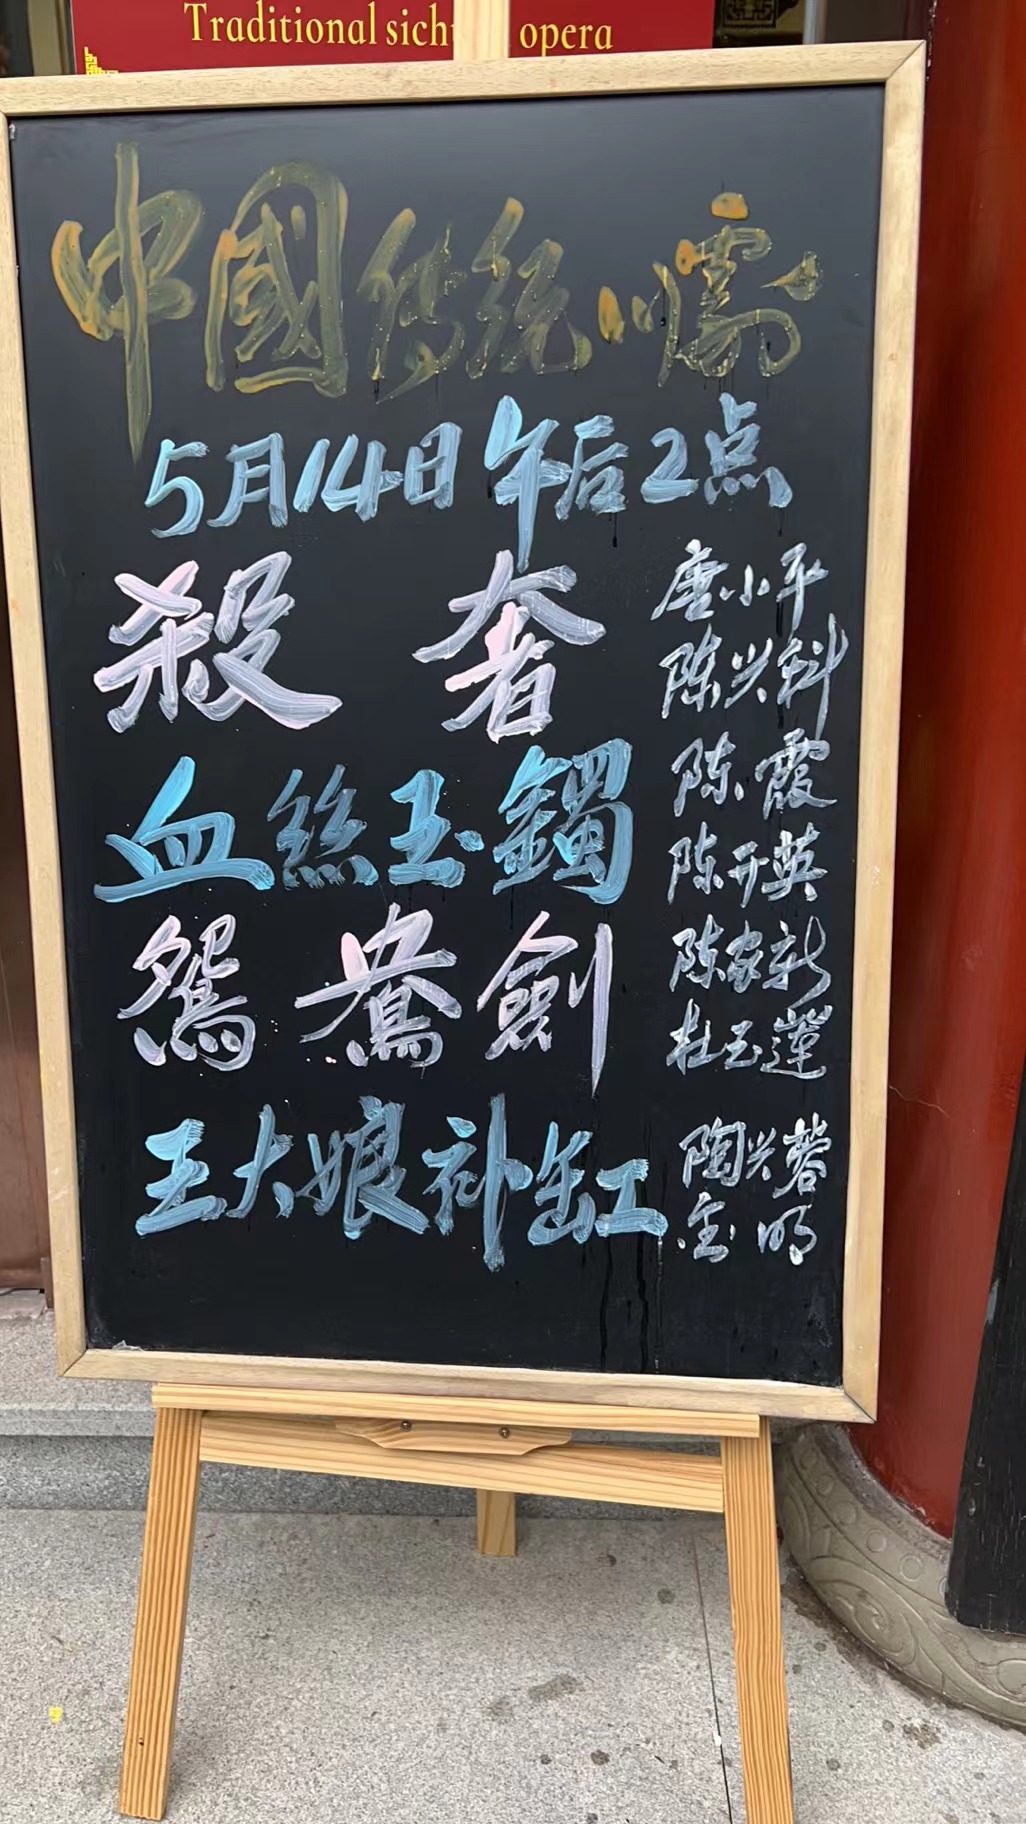 Traditional sich opera
中國传统川劇
5月14日午后2点
殺奢
唐小平
陈兴科
血絲玉鐲
陈霞
陈开英
鴛鴦劍
陈家新
杜玉蓮
王大娘补缸
陶兴蓉
金明